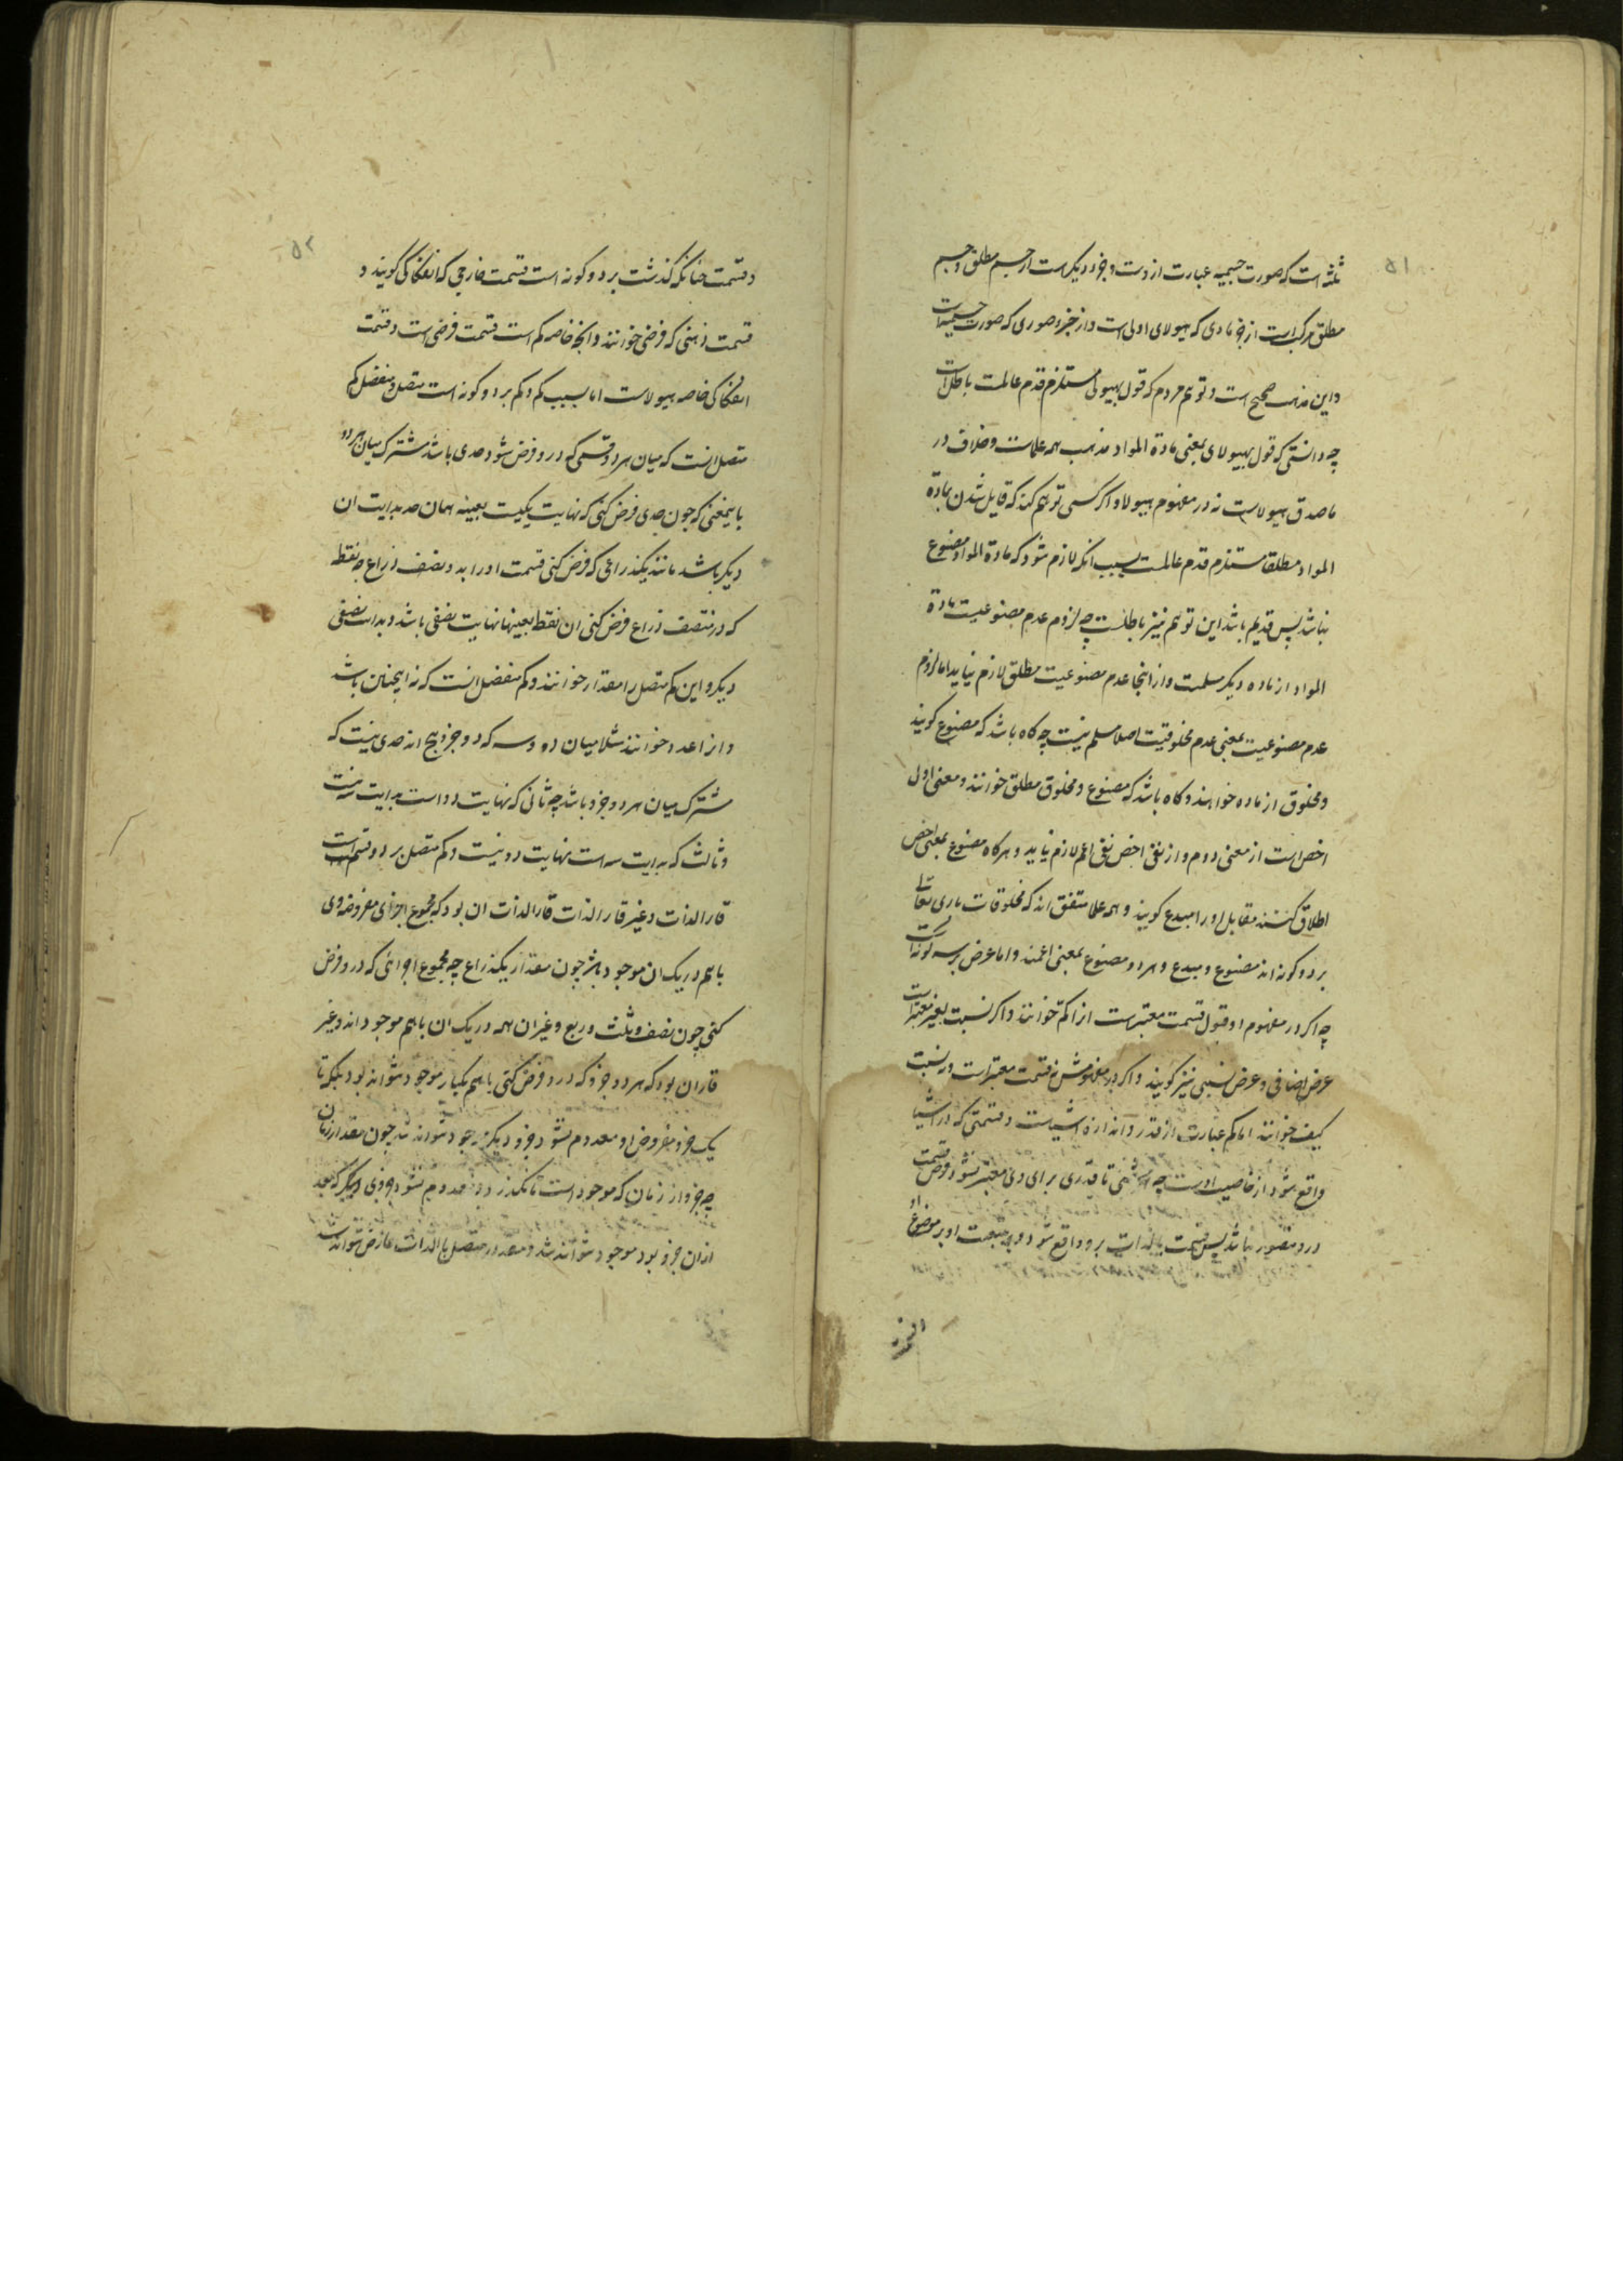 ۵۱
ثلثه است که صورت جسمیه عبارت ازوست و جزو دیگرست از جسم مطلق و جسم
مطلق مرکب است از جزو مادی که هیولای اولی است و از جزو صوری که صورت جسمیه است
و این مذهب صحیح است و توهم مردم که قول بهیولی مستلزم قدم عالمست باطل است
چه دانستی که قول بهیولای بمعنی مادة المواد مذهب همه علماست و خلاف در
ماصدق هیولاست نه در مفهوم هیولا و اگر کسی توهم کند که قایل شدن بمادة
المواد مطلقا مستلزم قدم عالمست بسبب آنکه لازم شود که مادة المواد مصنوع
نباشد پس قدیم باشد این توهم نیز باطلست چه لزوم عدم مصنوعیت مادة
المواد از ماده دیگر مسلمست و از اینجا عدم مصنوعیت مطلق لازم نیاید اما لزوم
عدم مصنوعیت بمعنی عدم مخلوقیت اصلا مسلم نیست چه گاه باشد که مصنوع گویند
و مخلوق از ماده خواهند و گاه باشد که مصنوع و مخلوق مطلق خوانند و معنی اول
اخص است از معنی دوم و از نفی اخص نفی اعم لازم نیاید و هرگاه مصنوع بمعنی اخص
اطلاق کنند مقابل اورا مبدع گویند و همه علما متفق اند که مخلوقات باری تعالی
بر دو گونه اند مصنوع و مبدع و هر دو مصنوع بمعنی اعمند و اما عرض بر سه گونه است
چه اگر در مفهوم او قبول قسمت معتبرست انرا کم خوانند و اگر نسبت بغیر معتبر است
عرض اضافی و عرض نسبی نیز گویند و اگر در مفهومش نه قسمت معتبر است و نه نسبت
کیف خوانند اما کم عبارت از قدر و اندازه اشیاست و قسمتی که در اشیا
واقع شود از خاصیت اوست چه تا قدری برای وی معتبر نشود فرض قسمت
درو متصور نباشد پس قسمت بالذات برو واقع شود و به تبعیت او بر موضوع او
۵۲
و قسمت چنانکه گذشت بر دو گونه است قسمت خارجی که انفکاکی گویند و
قسمت ذهنی که فرضی خوانند و آنچه خاصه کم است قسمت فرضی است و قسمت
انفکاکی خاصه هیولاست اما بسبب کم و کم بر دو گونه است متصل و منفصل کم
متصل انست که میان هر دو قسمی که درو فرض شود حدی باشد مشترک میان هر دو
باینمعنی که چون حدی فرض کنی که نهایت یکیست بعینه همان حد بدایت ان
دیگر باشد مانند یکذراعی که فرض کنی قسمت اورا بدو نصف ذراع چه نقطه
که در منتصف ذراع فرض کنی ان نقطه بعینها نهایت نصفی باشد و بدایت نصفی
دیگر و این کم متصل را مقدار خوانند و کم منفصل انست که نه اینچنین باشد
و انرا عدد خوانند مثلا میان دو و سه که دو جزو پنج اند حدی نیست که
مشترک میان هر دو جزو باشد چه ثانی که نهایت دو است بدایت سه نیست
و ثالث که بدایت سه است نهایت دو نیست و کم متصل بر دو قسم است
قار الذات و غیر قار الذات قار الذات ان بود که مجموع اجزای مفروضه وی
باهم در یک ان موجود بود چون مقدار یکذراع چه مجموع اجزائی که درو فرض
کنی چون نصف و ثلث و ربع و غیر ان همه در یک ان باهم موجود اند و غیر
قار ان بود که هر دو جزو که درو فرض کنی باهم یکبار موجود نتواند بود بلکه تا
یک جزو مفروض او معدوم نشود جزو دیگر موجود نتواند شد چون مقدار زمان
چه جزو از زمان که موجود است تا نگذرد و معدوم نشود جزوی دیگر که بعد
ازان جزو بود موجود نتواند شد و مقدار متصل بالذات عارض نتواند شد